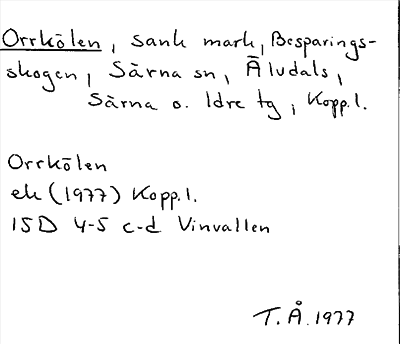 Orrkölen, sank mark, Besparings-
skogen, Särna sn, Äludals,
Särna o. Idre tg, Kopp.l.
Orrkölen
ek (1977) Kopp.l.
15D 4-5 c-d Vinvallen
T.Å. 1977